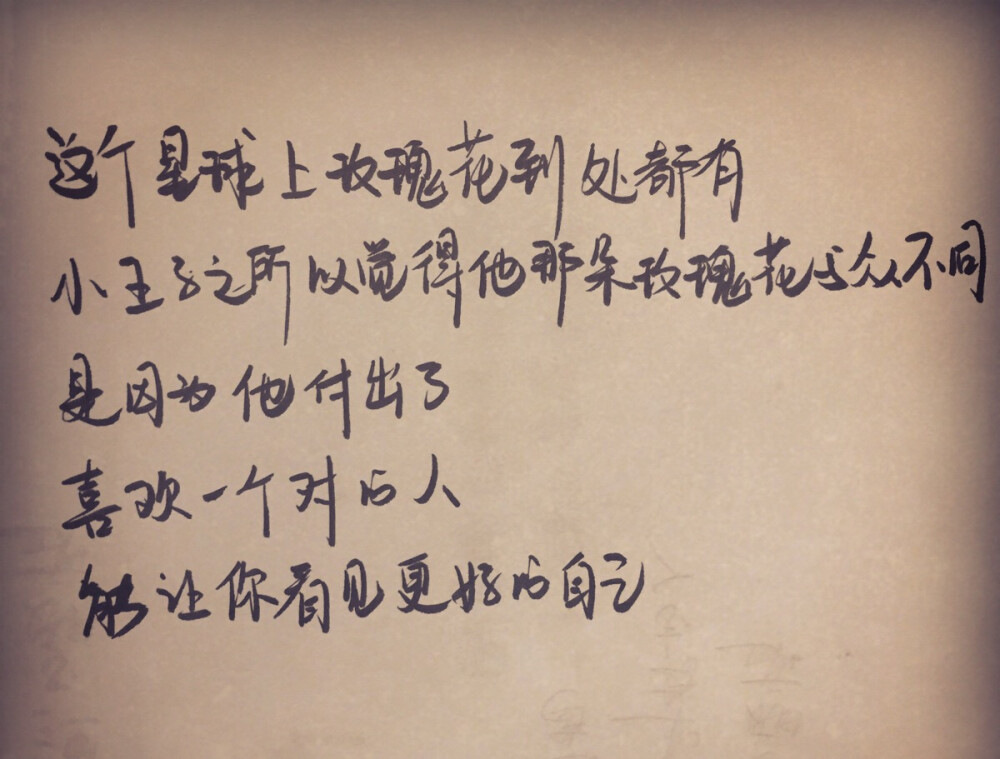 这个星球上玫瑰花到处都有
小王子之所以觉得他那朵玫瑰花与众不同
是因为他付出了
喜欢一个对的人
能让你看见更好的自己